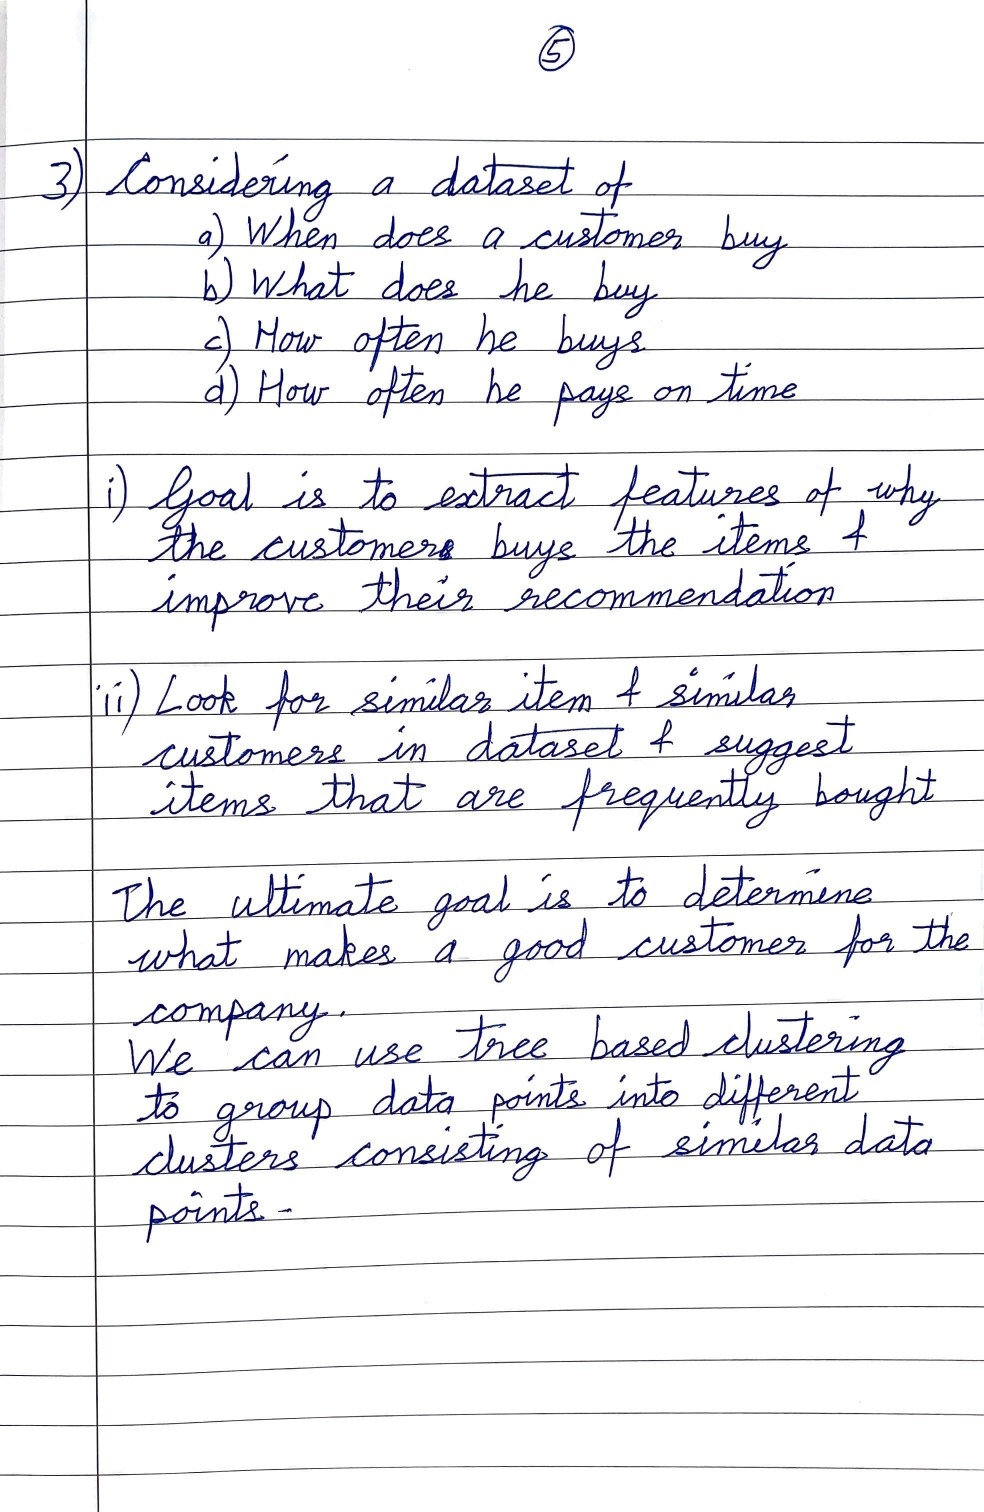 5
3) Considering a dataset of
a) When does a customer buy
b) What does he buy
c) How often he buys
d) How often he pays on time
i) Goal is to extract features of why
the customers buys the items &
improve their recommendation
ii) Look for similar item & similar
customers in dataset & suggest
items that are frequently bought
The ultimate goal is to determine
what makes a good customer for the
company.
We can use tree based clustering
to group data points into different
clusters consisting of similar data
points -